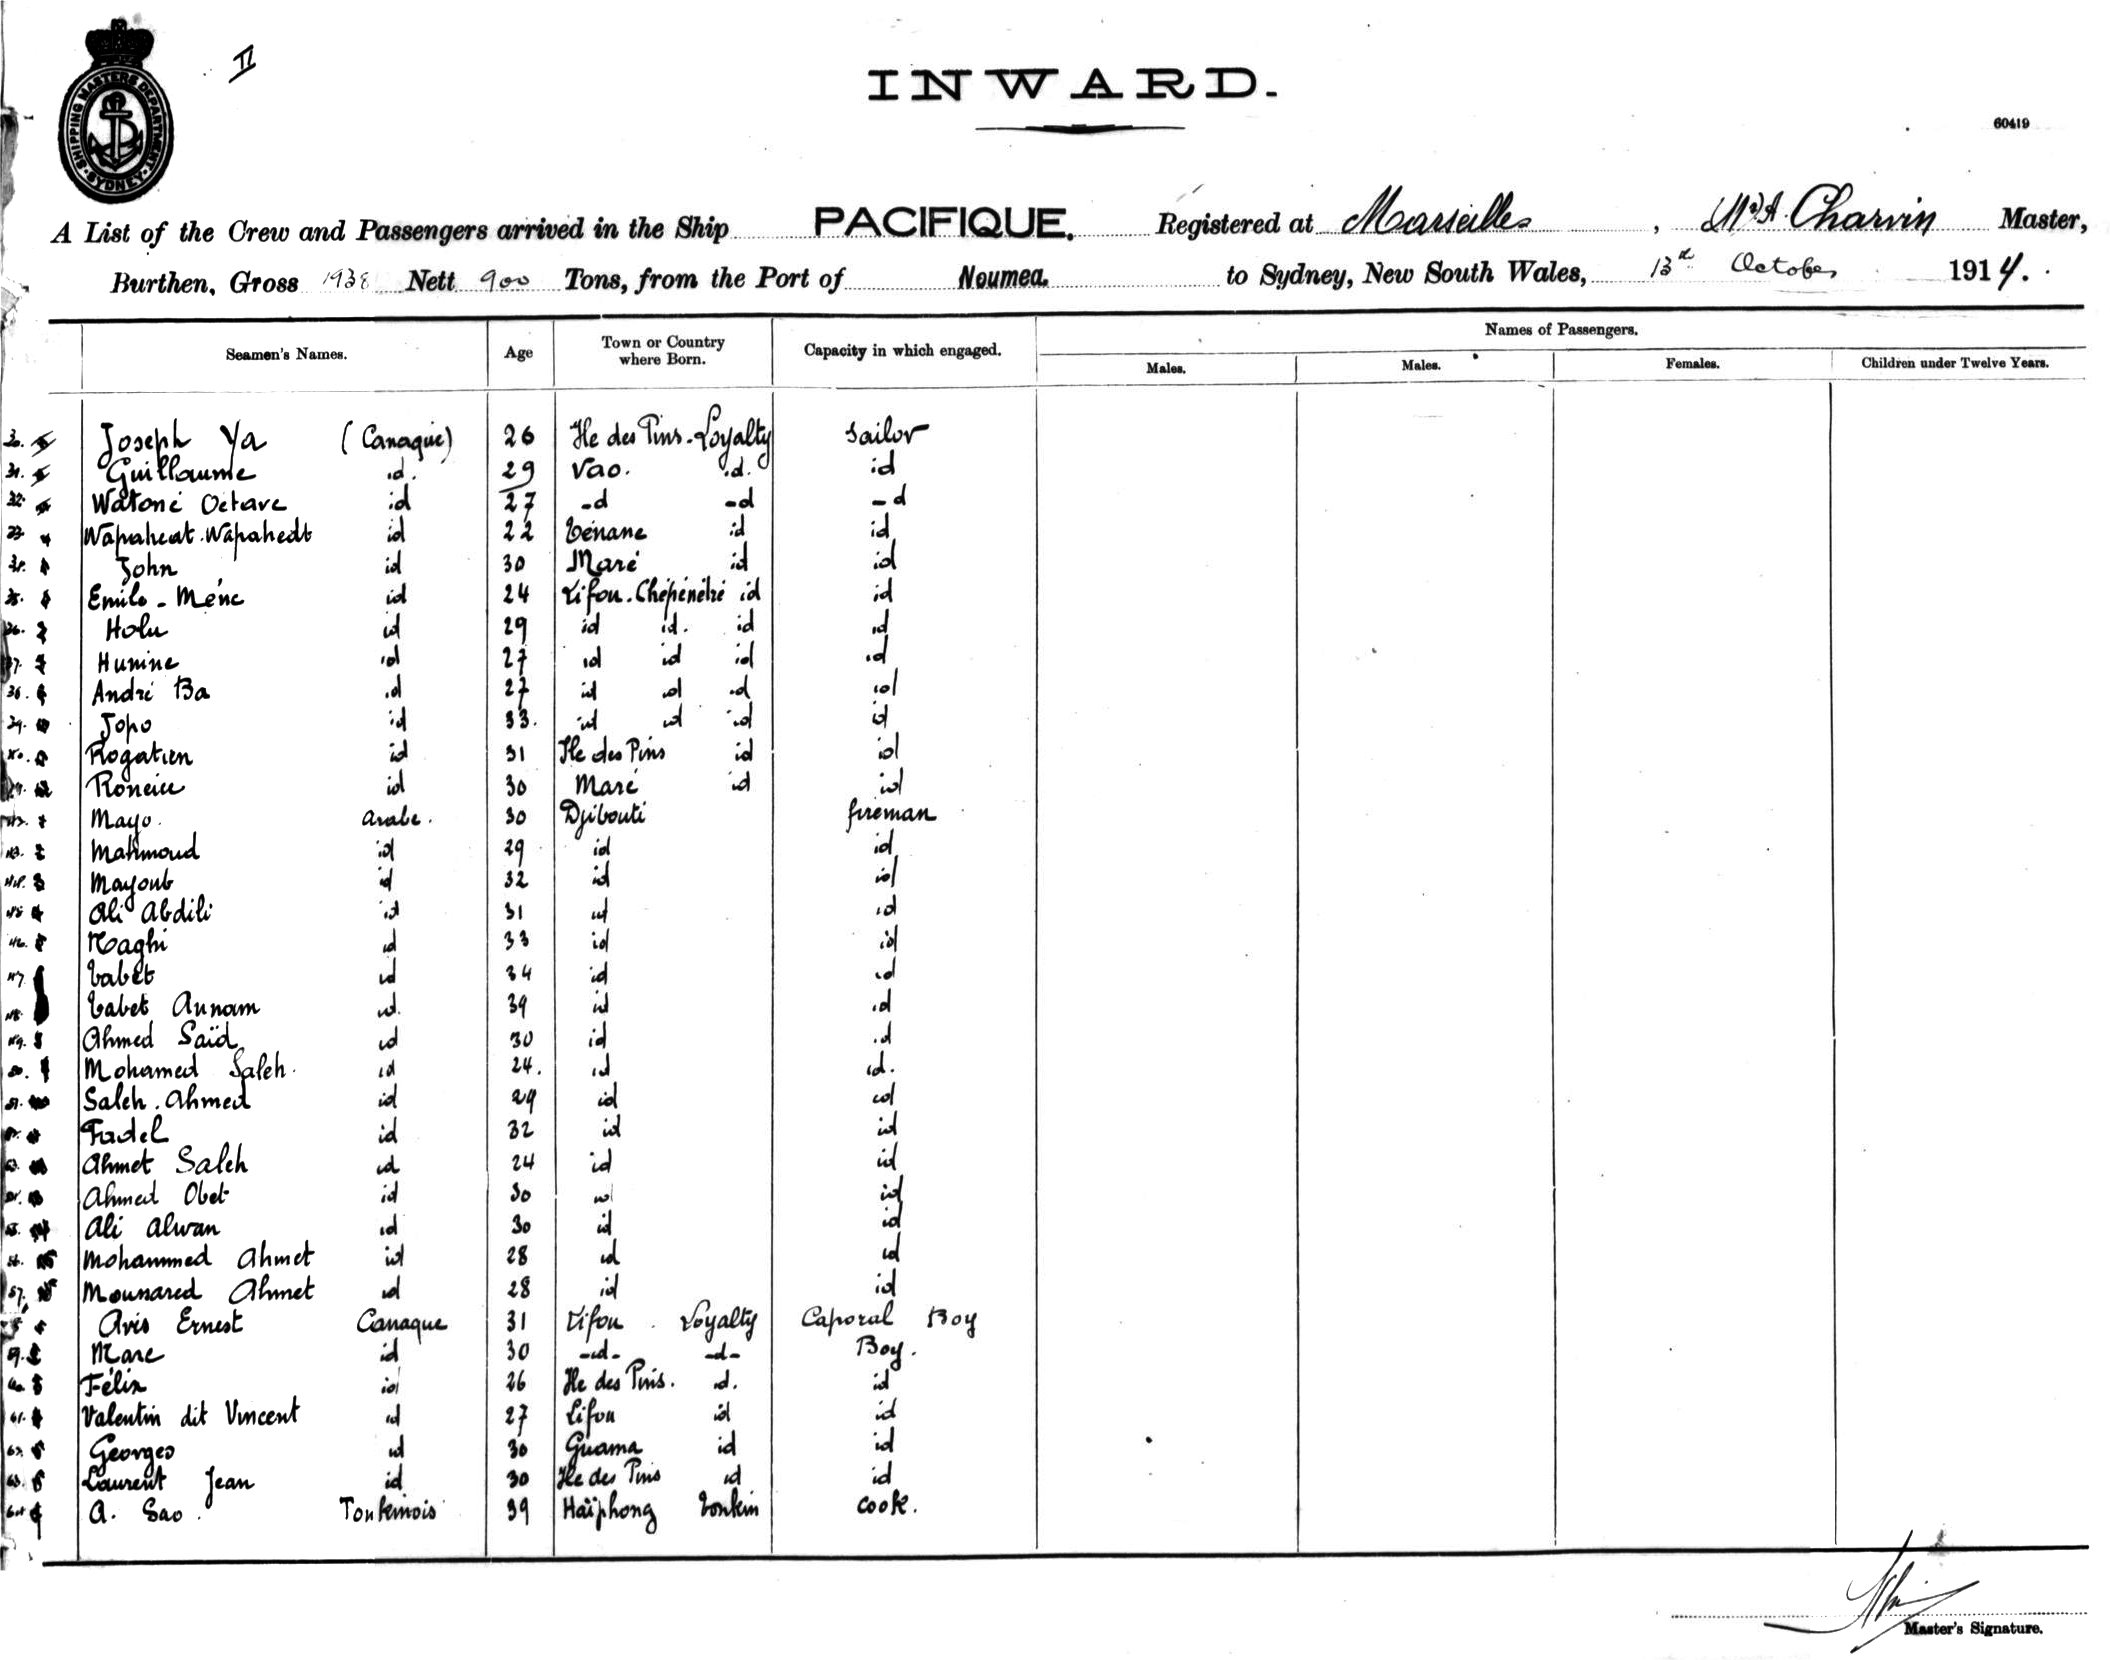 II
INWARD.
60419
SHIPPING MASTERS DEPARTMENT
SYDNEY
A List of the Crew and Passengers arrived in the Ship PACIFIQUE. Registered at Marseilles, Charvin Master,
Burthen, Gross 1938 Nett 900 Tons, from the Port of Noumea. to Sydney, New South Wales, 13th October 1914.
Seamen's Names. Age Town or Country where Born. Capacity in which engaged. Names of Passengers.
Males. Males. Females. Children under Twelve Years.
30. Joseph Ya (Canaque) 26 Ile des Pins. Loyalty sailor
31. Guillaume id. 29 Vao. id. id
32. Watoné Octave id 27 -d -d -d
33. Wapaheat. Wapahedt id 22 Ténane id id
34. John id 30 Maré id id
35. Emile - Méne id 24 Lifou. Chépénéhé id id
36. Holu id 29 id id. id id
37. Hunine id 27 id id id id
38. André Ba id 27 id id id id
39. Jopo id 33. id id id id
40. Rogatien id 31 Ile des Pins id id
41. id 30 Maré id id
42. Mayo. arabe. 30 Djibouti fireman
43. Mahmoud id 29 id id
44. Mayoub id 32 id id
45 Ali Abdili id 31 id id
46. Naghi id 33 id id
47. Tabet id 34 id id
48. Tabet Annam id. 39 id id
49. Ahmed Saïd id 30 id id
50. Mohamed Saleh. id 24. id id.
51. Saleh. Ahmed id 29 id id
52. Fadel id 32 id id
53. Ahmet Saleh id 24 id id
54. Ahmed Obet id 30 id id
55. Ali Alwan id 30 id id
56. Mohammed Ahmet id 28 id id
57. Mounared Ahmet id 28 id id
58 Avis Ernest Canaque 31 Lifou. Loyalty Caporal Boy
59. Marc id 30 -id- -d- Boy.
60. Félix id 26 Ile des Pins. id. id
61. Valentin dit Vincent id 27 Lifou id id
62. Georges id 30 Guama id id
63. Laurent Jean id 30 Ile des Pins id id
64 A. Sao. Tonkinois 39 Haïphong Tonkin cook.
Master's Signature.